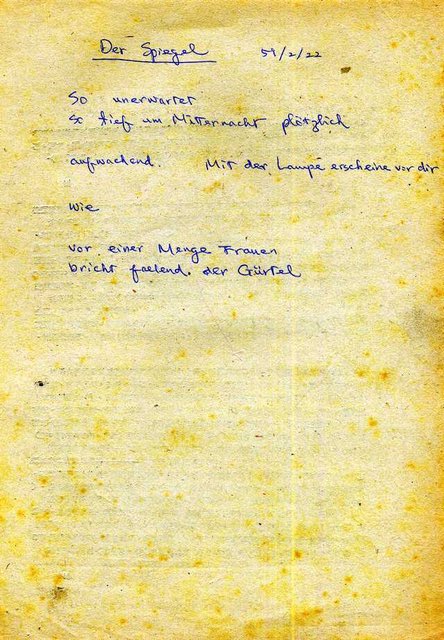 Der Spiegel 59/2/22
So unerwartet
so tief um Mitternacht plötzlich
aufwachend. Mit der Lampe erscheine vor dir
wie
vor einer Menge Frauen
bricht faelend. der Gürtel